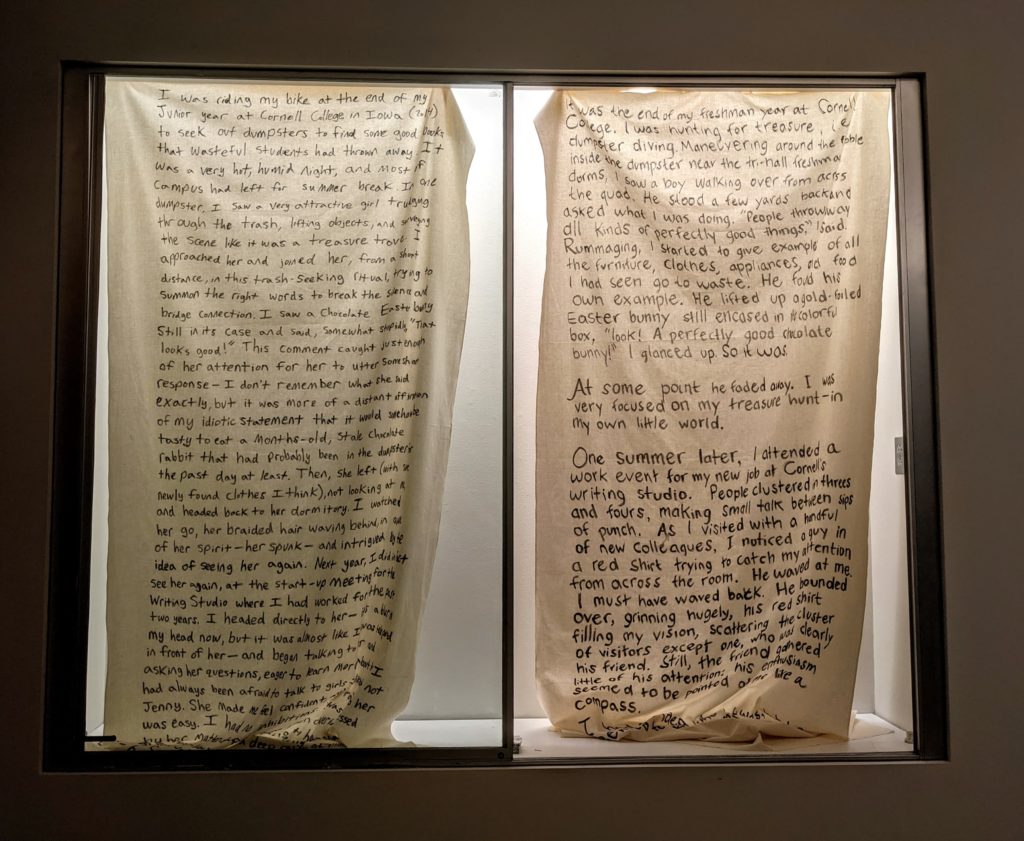 I was riding my bike at the end of my
Junior year at Cornell College in Iowa
to seek out dumpsters to find some good books
that wasteful students had thrown away. It
was a very hot, humid night, and most of
campus had left for summer break. In one
dumpster, I saw a very attractive girl trudging
through the trash, lifting objects, and surveying
the scene like it was a treasure trove. I
approached her and joined her, from a short
distance, in this trash-seeking ritual, trying to
summon the right words to break the silence and
bridge connection. I saw a Chocolate Easter bunny
Still in its case and said, somewhat stupidly, "That
looks good!" This comment caught just enough
of her attention for her to utter some short
response - I don't remember what she said
exactly, but it was more of a distant affirmation
of my idiotic statement that it would somehow be
tasty to eat a months-old, stale chocolate
rabbit that had probably been in the dumpster
the past day at least. Then, she left (with
newly found clothes I think), not looking at
and headed back to her dormitory. I watched
her go, her braided hair waving behind, in
of her spirit - her spunk - and intrigued by the
idea of seeing her again. Next year, I did
see her again, at the start-up meeting for the
Writing Studio where I had worked for the
two years. I headed directly to her
my head now, but it was almost like I was
in front of her - and began talking to
asking her questions, eager to learn more
had always been afraid to talk to girls not
Jenny. She made me feel confident her
was easy. I had no inhibitions
her
It was the end of my freshman year at Cornell
College. I was hunting for treasure, i.e.
dumpster diving. Maneuvering around the
inside the dumpster near the tri-hall freshman
dorms, I saw a boy walking over from across
the quad. He stood a few yards back and
asked what I was doing. "People throw away
all kinds of perfectly good things," I said.
Rummaging, I started to give example of all
the furniture, clothes, appliances, and food
I had seen go to waste. He found his
own example. He lifted up a gold-foiled
Easter bunny still encased in its colorful
box, "look! A perfectly good chocolate
bunny!" I glanced up. So it was.
At some point he faded away. I was
very focused on my treasure hunt-in
my own little world.
One summer later, I attended a
work event for my new job at Cornell's
writing studio. People clustered in threes
and fours, making small talk between sips
of punch. As I visited with a handful
of new colleagues, I noticed a guy in
a red shirt trying to catch my attention
from across the room. He waved at me.
I must have waved back. He bounded
over, grinning hugely, his red shirt
filling my vision, scattering the cluster
of visitors except one, who was clearly
his friend. Still, the friend gathered
little of his attention; his enthusiasm
seemed to be pointed at me like a
compass.